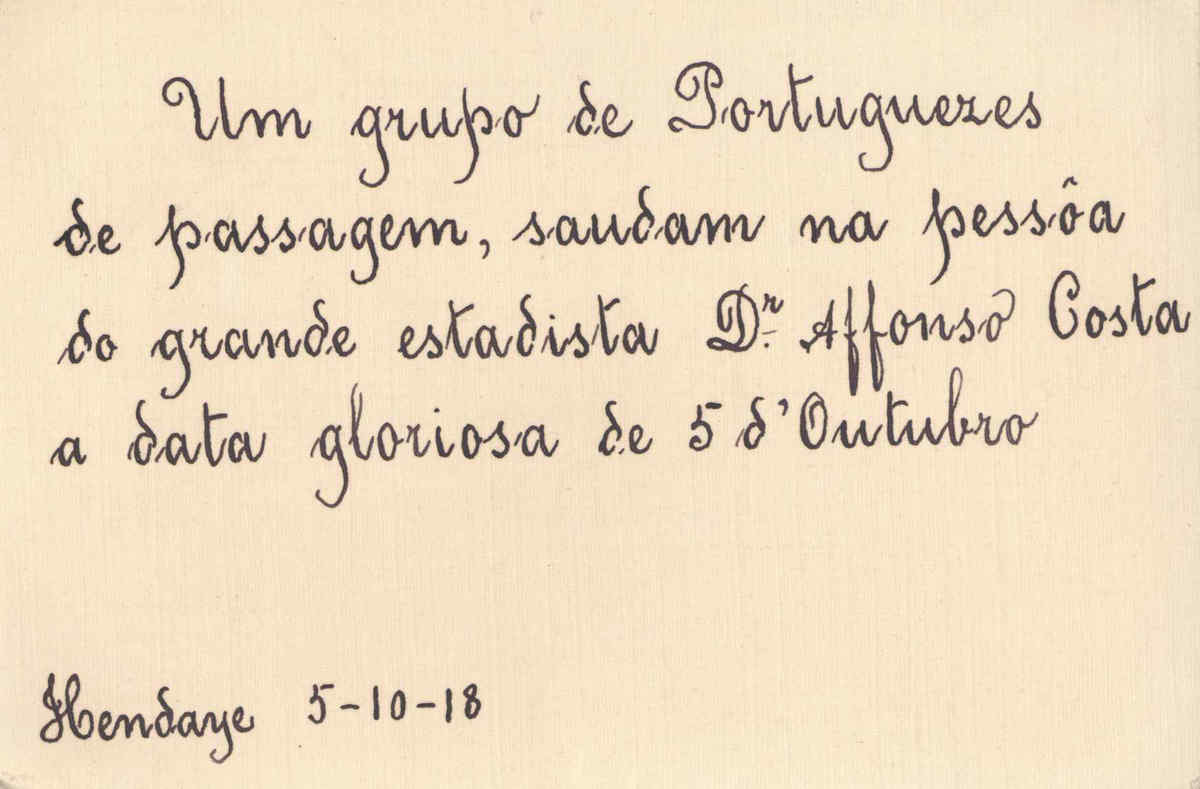 Um grupo de Portuguezes
de passagem, saudam na pessôa
do grande estadista Dr. Affonso Costa
a data gloriosa de 5 d'Outubro
Hendaye 5-10-18